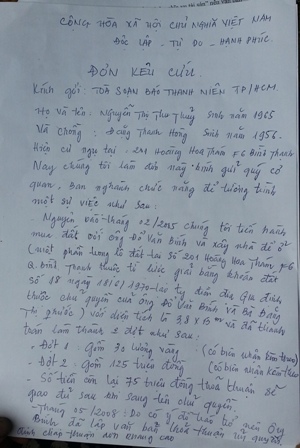 CỘNG HÒA XÃ HỘI CHỦ NGHĨA VIỆT NAM
ĐỘC LẬP - TỰ DO - HẠNH PHÚC
ĐƠN KÊU CỨU
Kính gởi: TOÀ SOẠN BÁO THANH NIÊN TP/HCM.
Họ và tên: Nguyễn Thị Thu Thuỷ Sinh năm 1965
Và chồng: Đặng Thanh Hồng Sinh năm 1956.
Hiện cư ngụ tại: 2M Hoàng Hoa Thám F6 Bình Thạnh
Nay chúng tôi làm đơn này kính gửi quý cơ
quan, Ban nghành chức năng để tường trình
một sự việc như sau:
- Nguyên vào tháng 02/2005 chúng tôi tiến hành
mua đất với ông Đỗ Văn Bính và xây nhà để ở
(một phần trong lô đất số 209 Hoàng Hoa Thám F6
Q. Bình Thạnh thuộc tờ lược giải bằng khoán đất
số 18 ngày 18/6/1970
thuộc chủ quyền của ông Đỗ Văn Bính và Bà Đặng
Thị phước) với diện tích là và đã thanh
toán làm thành 2 đợt như sau:
- Đợt 1: Gồm 30 lượng vàng (có biên nhận kèm theo)
- Đợt 2: Gồm 125 triệu đồng (có biên nhận kèm theo)
- Số tiền còn lại 75 triệu đồng thoả thuận sẽ
giao đủ sau khi sang tên chủ quyền.
- Tháng 05/2008: Do có ý nên ông
Bính đã lập văn bản thoả thuận